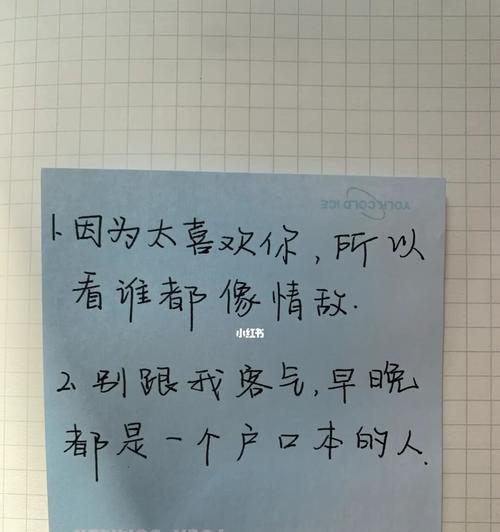 YOLK COLD ICE
1.因为太喜欢你,所以
看谁都像情敌.
小红书
2、别跟我客气,早晚
都是一个户口本的人.